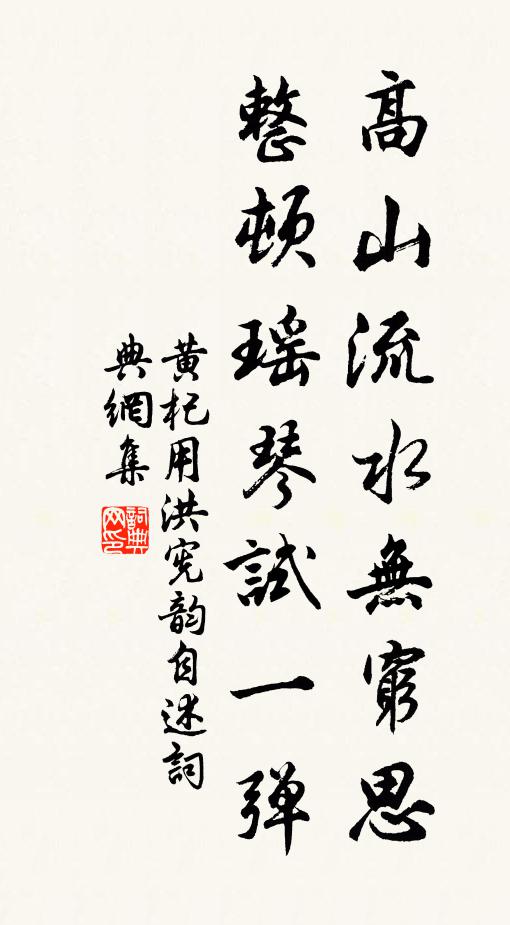 高山流水無窮思
整頓瑶琴試一弹
黄杞用洪宪韵自述詞
典網集
詞典网印